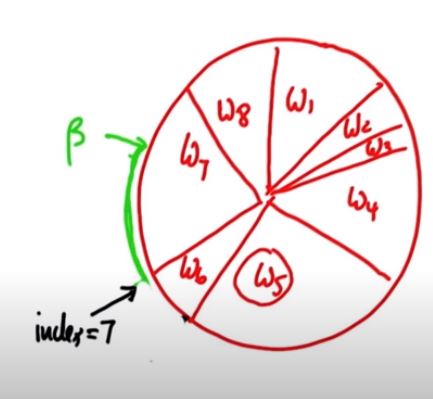 ω8 ω1
β
ω2
ω7 ω3
ω4
ω6 ω5
index=7